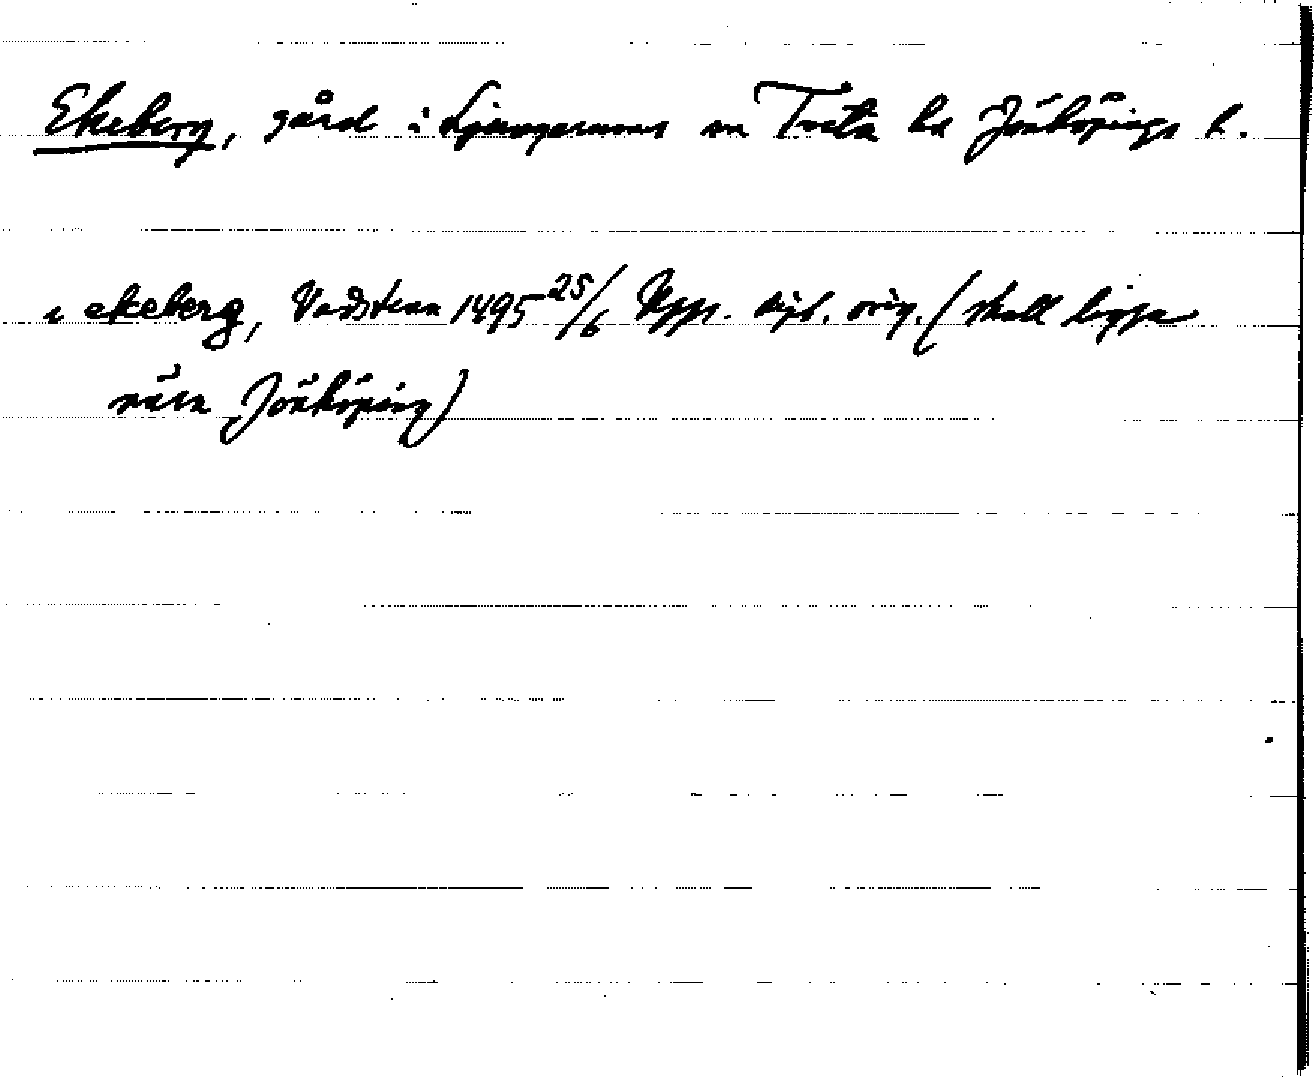 Ekeberg, gård i Ljungarums sn Tveta hd Jönköpings l.
i ekeberg, Vadstena 1495 25/6 Upps. dipl. orig. (skall ligga
nära Jönköping)